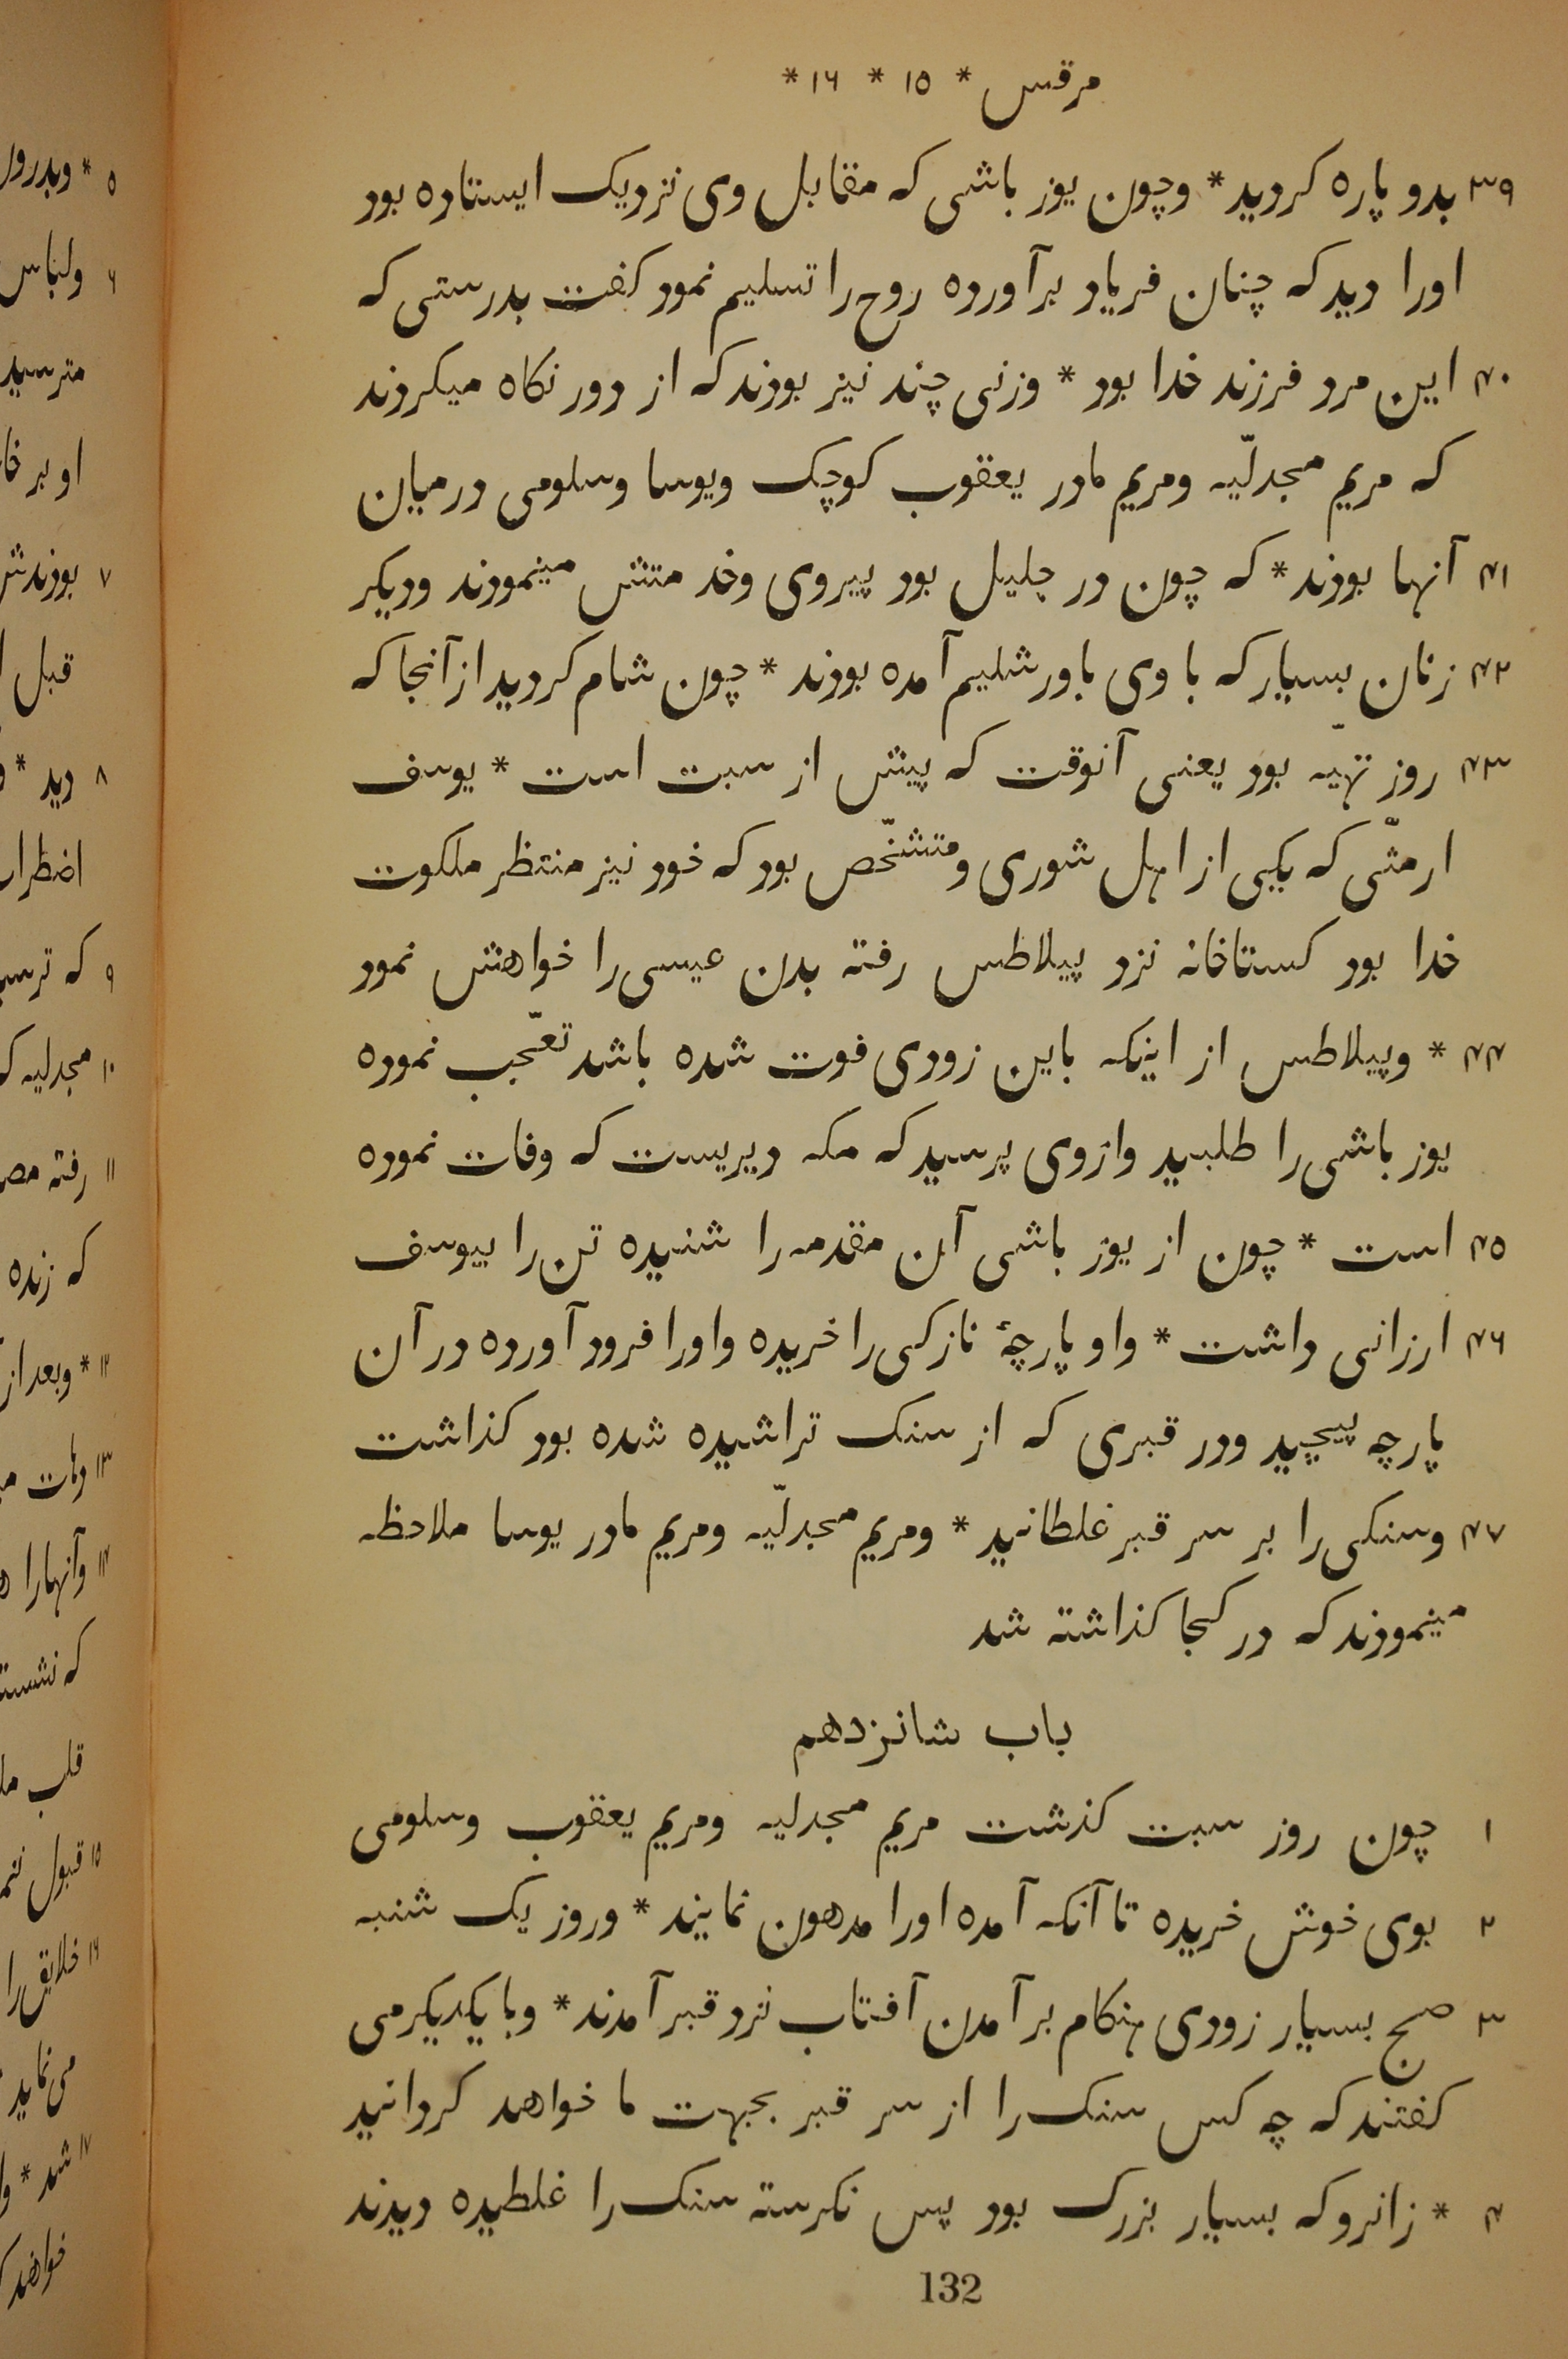 مرقس * ۱۵ * ۱۶ *
۳۹ بدو پاره کردید * وچون یوز باشی که مقابل وی نزدیک ایستاده بود
اورا دید که چنان فریاد برآورده روح را تسلیم نمود کفت بدرستی که
۴۰ این مرد فرزند خدا بود * وزنی چند نیز بودند که از دور نکاه میکردند
که مریم مجدلّیه ومریم مادر یعقوب کوچک ویوسا وسلومی درمیان
۴۱ آنها بودند * که چون در جلیل بود پیروی وخدمتش مینمودند ودیکر
۴۲ زنان بسیار که با وی باورشلیم آمده بودند * چون شام کردید ازآنجا که
۴۳ روز تهیّه بود یعنی آنوقت که پیش از سبت است * یوسف
ارمتّی که یکی از اهل شوری ومتشخّص بود که خود نیز منتظر ملکوت
خدا بود کستاخانه نزد پیلاطس رفته بدن عیسی را خواهش نمود
۴۴ * وپیلاطس از اینکه باین زودی فوت شده باشد تعّجب نموده
یوز باشی را طلبید وازوی پرسید که مکه دیریست که وفات نموده
۴۵ است * چون از یوز باشی آن مقدمه را شنیده تن را بیوسف
۴۶ ارزانی داشت * واو پارچۀ نازکی را خریده واورا فرود آورده در آن
پارچه پیچید ودر قبری که از سنک تراشیده شده بود کذاشت
۴۷ وسنکی را بر سر قبر غلطانید * ومریم مجدلّیه ومریم مادر یوسا ملاحظه
مینمودند که در کجا کذاشته شد
باب شانزدهم
۱ چون روز سبت کذشت مریم مجدلیه ومریم یعقوب وسلومی
۲ بوی خوش خریده تا آنکه آمده اورا مدهون نمایند * وروز یک شنبه
۳ صبح بسیار زودی هنکام برآمدن آفتاب نزد قبر آمدند * وبا یکدیکر می
کفتند که چه کس سنک را از سر قبر بجهت ما خواهد کردانید
۴ * زانرو که بسیار بزرک بود پس نکرسته سنک را غلطیده دیدند
132